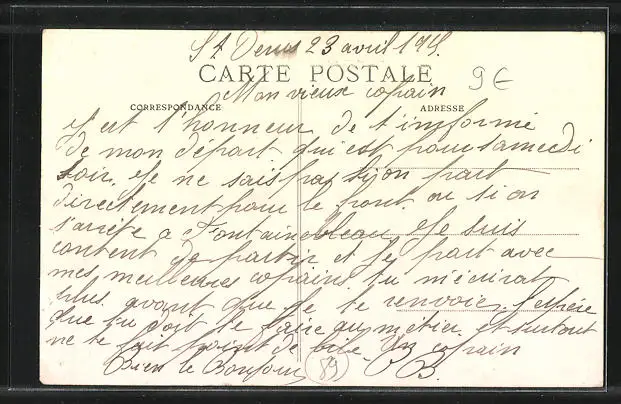 St Denis 23 avril 1915.
CARTE POSTALE
9€
Mon vieux copain
CORRESPONDANCE
ADRESSE
J'ai l'honneur de t'informé
de mon départ qui est pour samedi
soir. Je ne sais pas si on part
directement pour le front ou si on
s'arrête a Fontainebleau. Je suis
content de partir et je part avec
mes meilleures copains. tu m'écrirat
plus avant que je te renvoies. J'espère
que tu doit te faire au métier, et surtout
ne te fait point de bile. Un copain
Bien le Bonjour B.
89